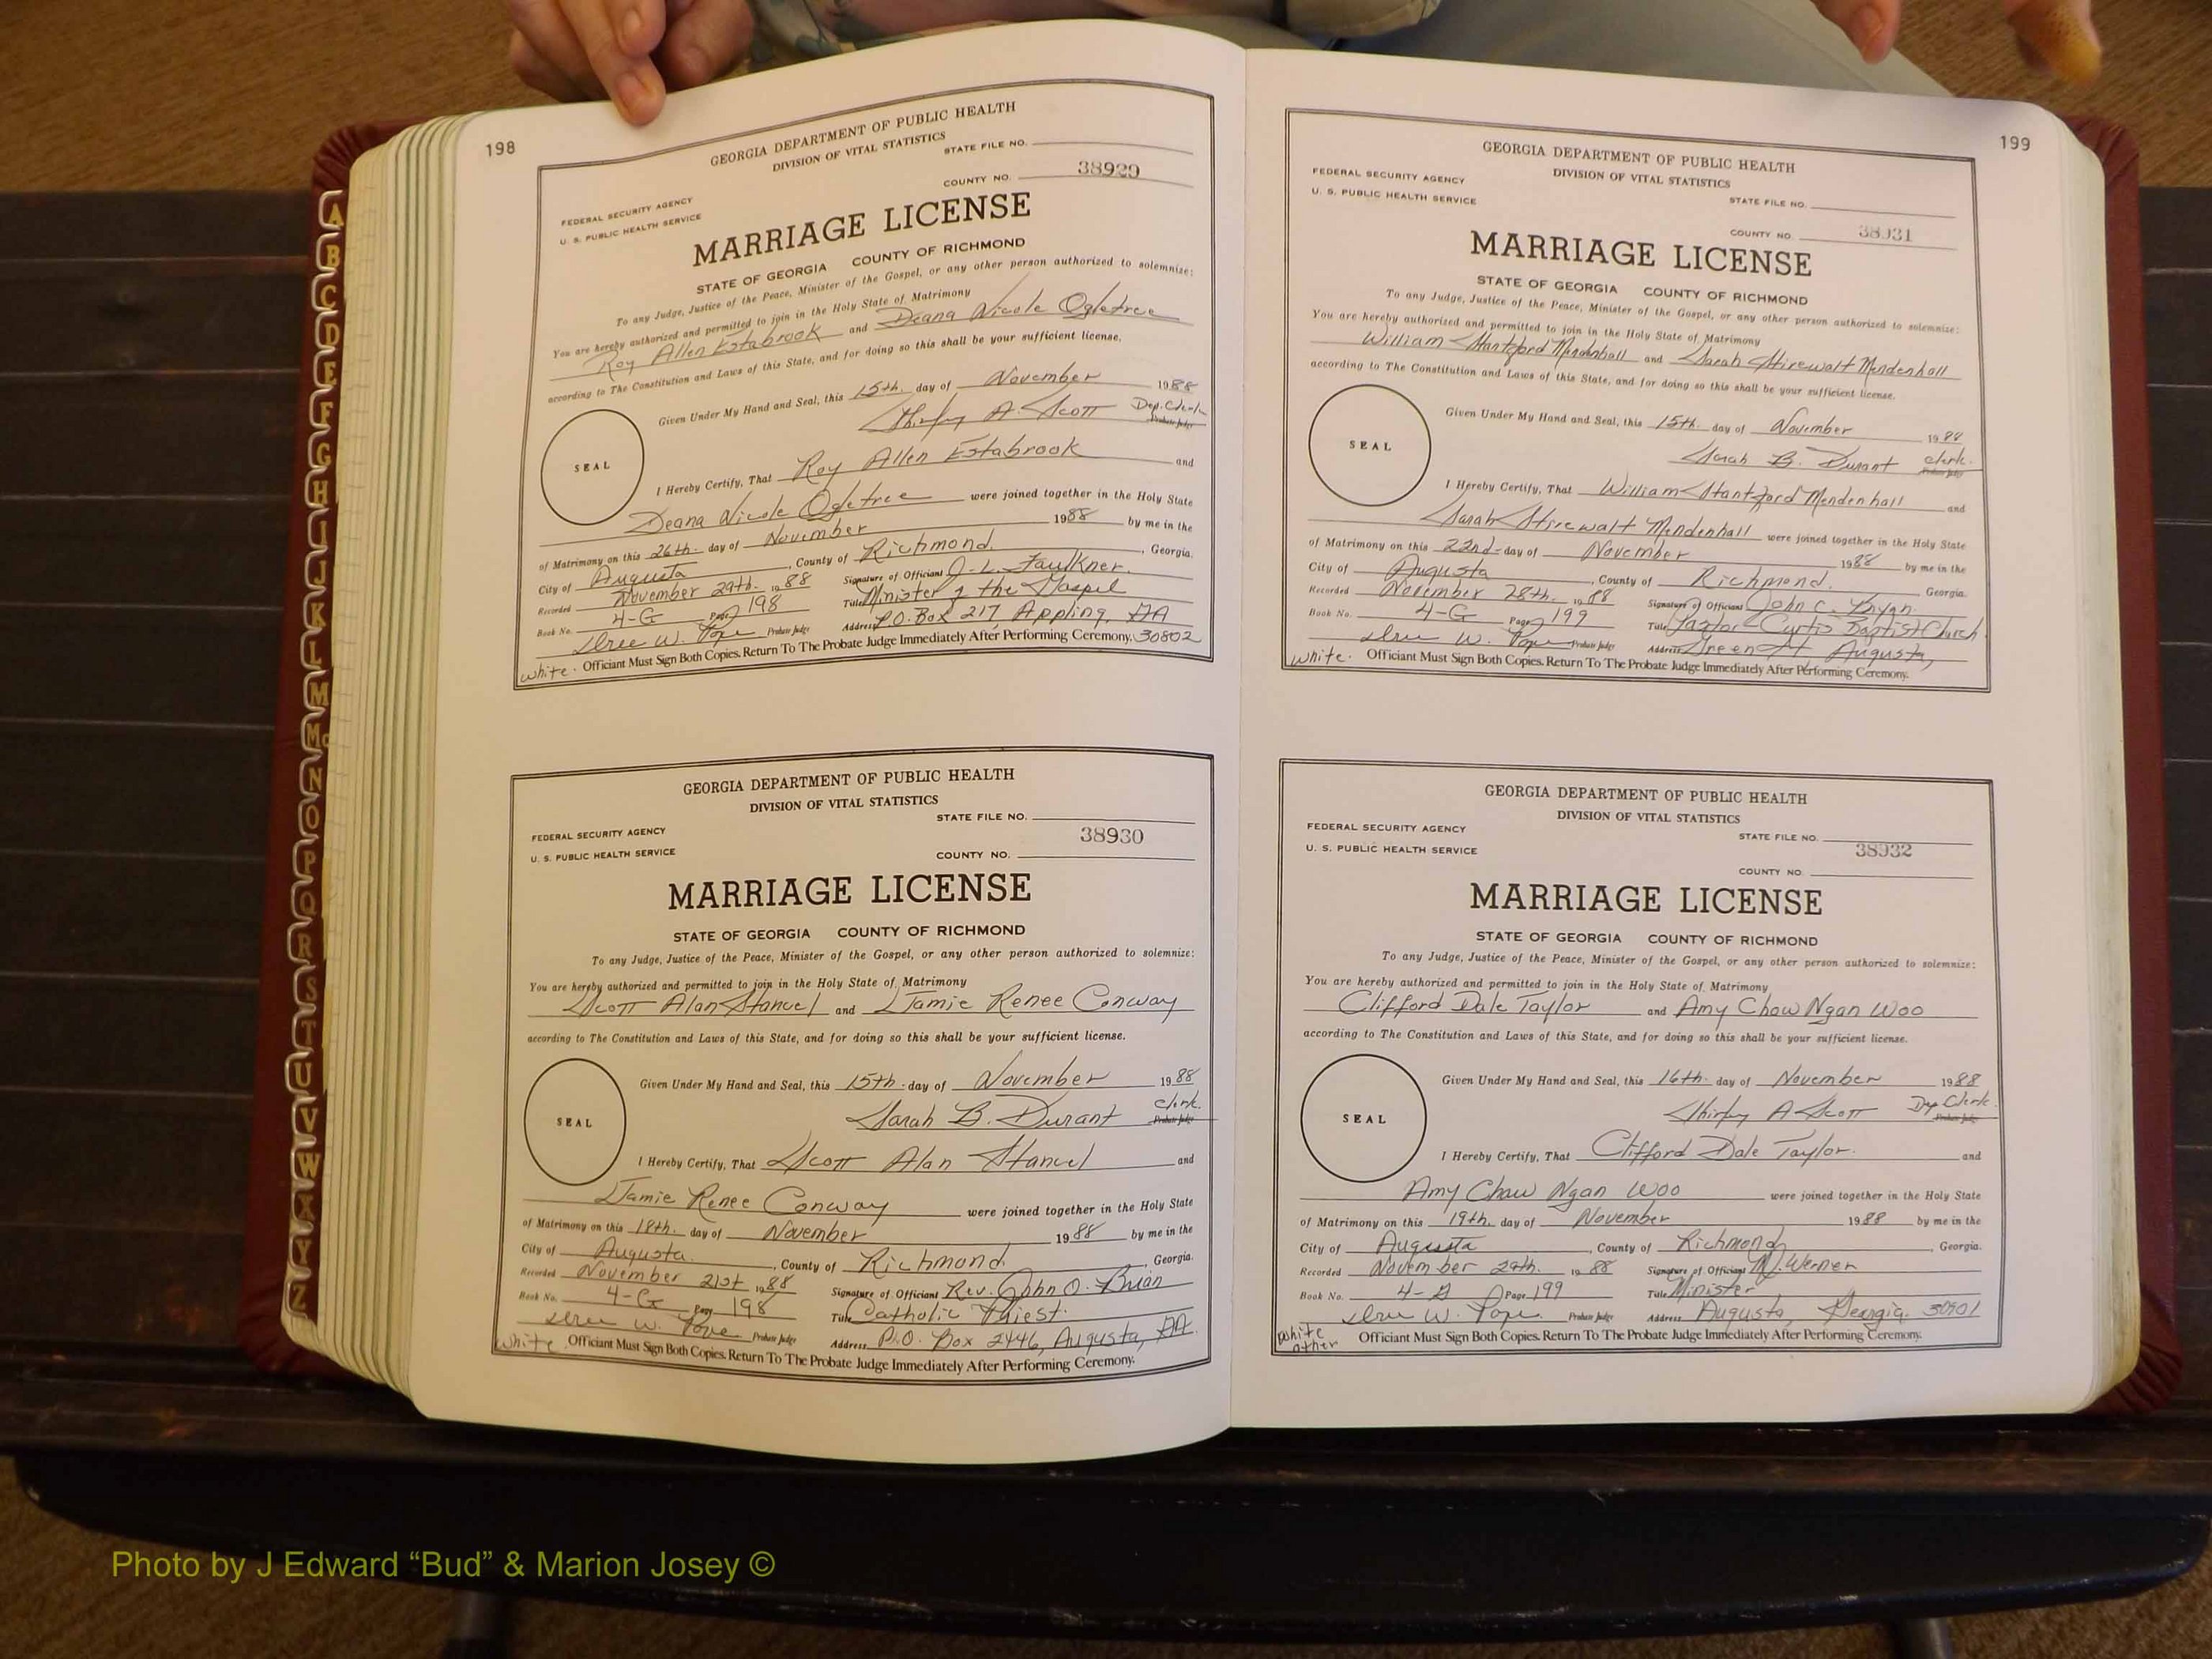 198
GEORGIA DEPARTMENT OF PUBLIC HEALTH
DIVISION OF VITAL STATISTICS
STATE FILE NO.
38929
COUNTY NO.
FEDERAL SECURITY AGENCY
U. S. PUBLIC HEALTH SERVICE
MARRIAGE LICENSE
STATE OF GEORGIA COUNTY OF RICHMOND
To any Judge, Justice of the Peace, Minister of the Gospel, or any other person authorized to solemnize:
You are hereby authorized and permitted to join in the Holy State of Matrimony
Roy Allen Estabrook and Deana Nicole Ogletree
according to The Constitution and Laws of this State, and for doing so this shall be your sufficient license.
Given Under My Hand and Seal, this 15th. day of November 1988
Shirley A. Scott Dep. Clerk
Probate Judge
SEAL
I Hereby Certify, That Roy Allen Estabrook and
Deana Nicole Ogletree were joined together in the Holy State
of Matrimony on this 26th. day of November 1988 by me in the
City of Augusta, County of Richmond, Georgia.
Recorded November 29th. 1988 Signature of Officiant J. L. Faulkner.
Book No. 4-G Page 198 Title Minister of the Gospel
Probate Judge Address P.O. Box 217, Appling, GA 30802
white. Officiant Must Sign Both Copies. Return To The Probate Judge Immediately After Performing Ceremony.
GEORGIA DEPARTMENT OF PUBLIC HEALTH
DIVISION OF VITAL STATISTICS
STATE FILE NO.
38930
FEDERAL SECURITY AGENCY
U. S. PUBLIC HEALTH SERVICE
COUNTY NO.
MARRIAGE LICENSE
STATE OF GEORGIA COUNTY OF RICHMOND
To any Judge, Justice of the Peace, Minister of the Gospel, or any other person authorized to solemnize:
You are hereby authorized and permitted to join in the Holy State of Matrimony
Scott Alan Stancel and Jamie Renee Conway
according to The Constitution and Laws of this State, and for doing so this shall be your sufficient license.
Given Under My Hand and Seal, this 15th. day of November 1988
Sarah B. Durant Clerk.
Probate Judge
SEAL
I Hereby Certify, That Scott Alan Stancel and
Jamie Renee Conway were joined together in the Holy State
of Matrimony on this 18th. day of November 1988 by me in the
City of Augusta, County of Richmond, Georgia.
Recorded November 21st 1988 Signature of Officiant Rev. John O. Brian
Book No. 4-G Page 198 Title Catholic Priest.
Probate Judge Address P.O. Box 2446, Augusta, GA.
white. Officiant Must Sign Both Copies. Return To The Probate Judge Immediately After Performing Ceremony.
199
GEORGIA DEPARTMENT OF PUBLIC HEALTH
DIVISION OF VITAL STATISTICS
FEDERAL SECURITY AGENCY
U. S. PUBLIC HEALTH SERVICE
STATE FILE NO.
COUNTY NO. 38931
MARRIAGE LICENSE
STATE OF GEORGIA COUNTY OF RICHMOND
To any Judge, Justice of the Peace, Minister of the Gospel, or any other person authorized to solemnize:
You are hereby authorized and permitted to join in the Holy State of Matrimony
William Mendenhall and Sarah Stirewalt Mendenhall
according to The Constitution and Laws of this State, and for doing so this shall be your sufficient license.
Given Under My Hand and Seal, this 15th. day of November 1988
Sarah B. Durant Clerk.
Probate Judge
SEAL
I Hereby Certify, That William Mendenhall and
Sarah Stirewalt Mendenhall were joined together in the Holy State
of Matrimony on this 22nd day of November 1988 by me in the
City of Augusta, County of Richmond. Georgia.
Recorded November 28th. 1988 Signature of Officiant John C.
Book No. 4-G Page 199 Title Curtis Baptist Church
Probate Judge Address Green St Augusta,
White. Officiant Must Sign Both Copies. Return To The Probate Judge Immediately After Performing Ceremony.
GEORGIA DEPARTMENT OF PUBLIC HEALTH
DIVISION OF VITAL STATISTICS
FEDERAL SECURITY AGENCY
U. S. PUBLIC HEALTH SERVICE
STATE FILE NO.
38932
COUNTY NO.
MARRIAGE LICENSE
STATE OF GEORGIA COUNTY OF RICHMOND
To any Judge, Justice of the Peace, Minister of the Gospel, or any other person authorized to solemnize:
You are hereby authorized and permitted to join in the Holy State of Matrimony
Clifford Dale Taylor and Amy Chaw Ngan Woo
according to The Constitution and Laws of this State, and for doing so this shall be your sufficient license.
Given Under My Hand and Seal, this 16th. day of November 1988
Shirley A Scott Dep. Clerk.
Probate Judge
SEAL
I Hereby Certify, That Clifford Dale Taylor. and
Amy Chaw Ngan Woo were joined together in the Holy State
of Matrimony on this 19th. day of November 1988 by me in the
City of Augusta, County of Richmond, Georgia.
Recorded November 29th. 1988 Signature of Officiant Werner
Book No. 4-G Page 199 Title Minister
Probate Judge Address Augusta, Georgia. 30901
white other Officiant Must Sign Both Copies. Return To The Probate Judge Immediately After Performing Ceremony.
A
B
C
D
E
F
G
H
I
J
K
L
M
Mc
N
O
P
Q
R
S
T
U
V
W
X
Y
Z
Photo by J Edward “Bud” & Marion Josey ©